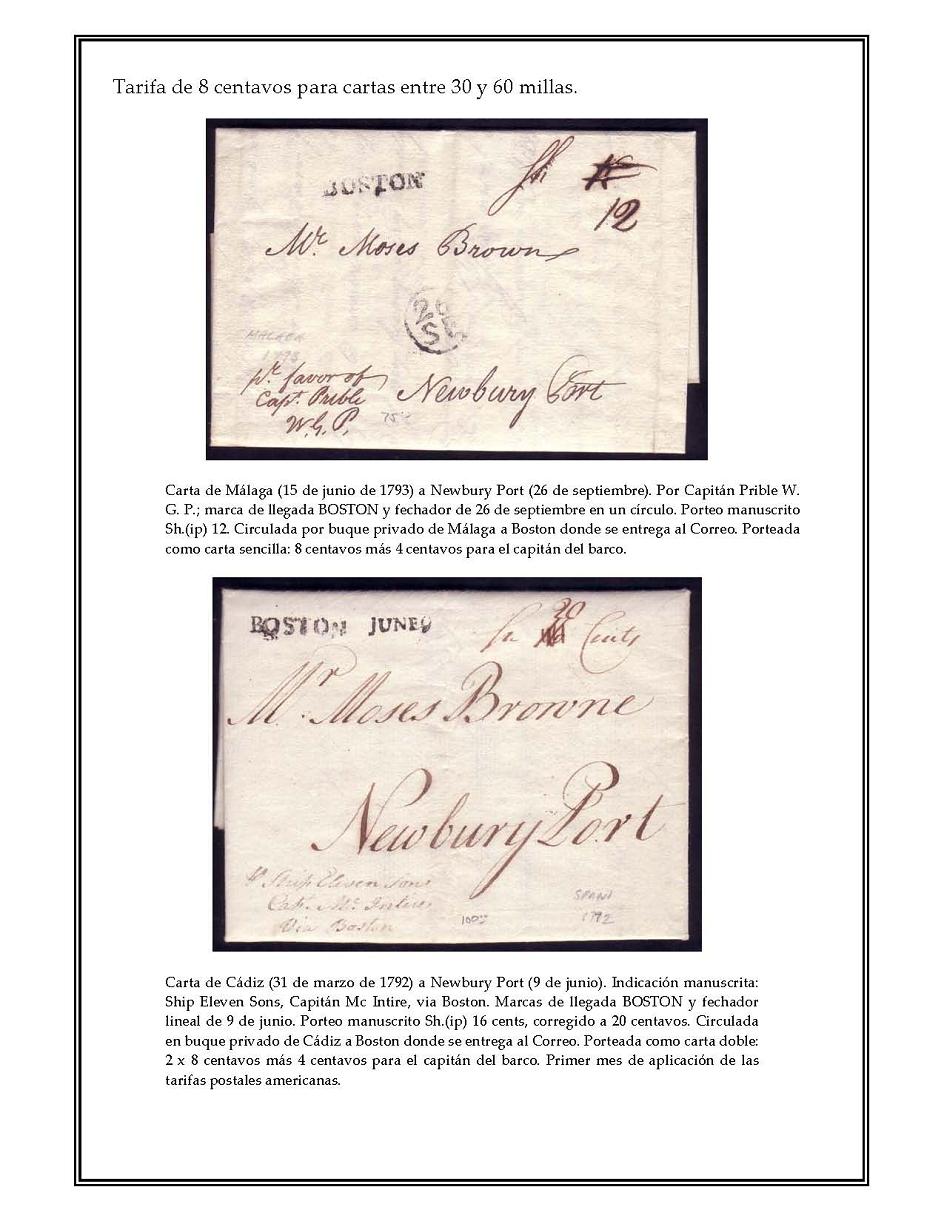 Tarifa de 8 centavos para cartas entre 30 y 60 millas.
BOSTON
Sh
12
Mr. Moses Brown
26
SE
MALAGA
1793
pr. favor of
Capt. Prible
W. G. P.
Newbury Port
75
Carta de Málaga (15 de junio de 1793) a Newbury Port (26 de septiembre). Por Capitán Prible W.
G. P.; marca de llegada BOSTON y fechador de 26 de septiembre en un círculo. Porteo manuscrito
Sh.(ip) 12. Circulada por buque privado de Málaga a Boston donde se entrega al Correo. Porteada
como carta sencilla: 8 centavos más 4 centavos para el capitán del barco.
BOSTON JUNE 9
20
Sh Cents
Mr. Moses Browne
Newbury Port
Ship Eleven Sons
Capt. Mc. Intire
Via Boston
100
SPAIN
1792
Carta de Cádiz (31 de marzo de 1792) a Newbury Port (9 de junio). Indicación manuscrita:
Ship Eleven Sons, Capitán Mc Intire, via Boston. Marcas de llegada BOSTON y fechador
lineal de 9 de junio. Porteo manuscrito Sh.(ip) 16 cents, corregido a 20 centavos. Circulada
en buque privado de Cádiz a Boston donde se entrega al Correo. Porteada como carta doble:
2 x 8 centavos más 4 centavos para el capitán del barco. Primer mes de aplicación de las
tarifas postales americanas.